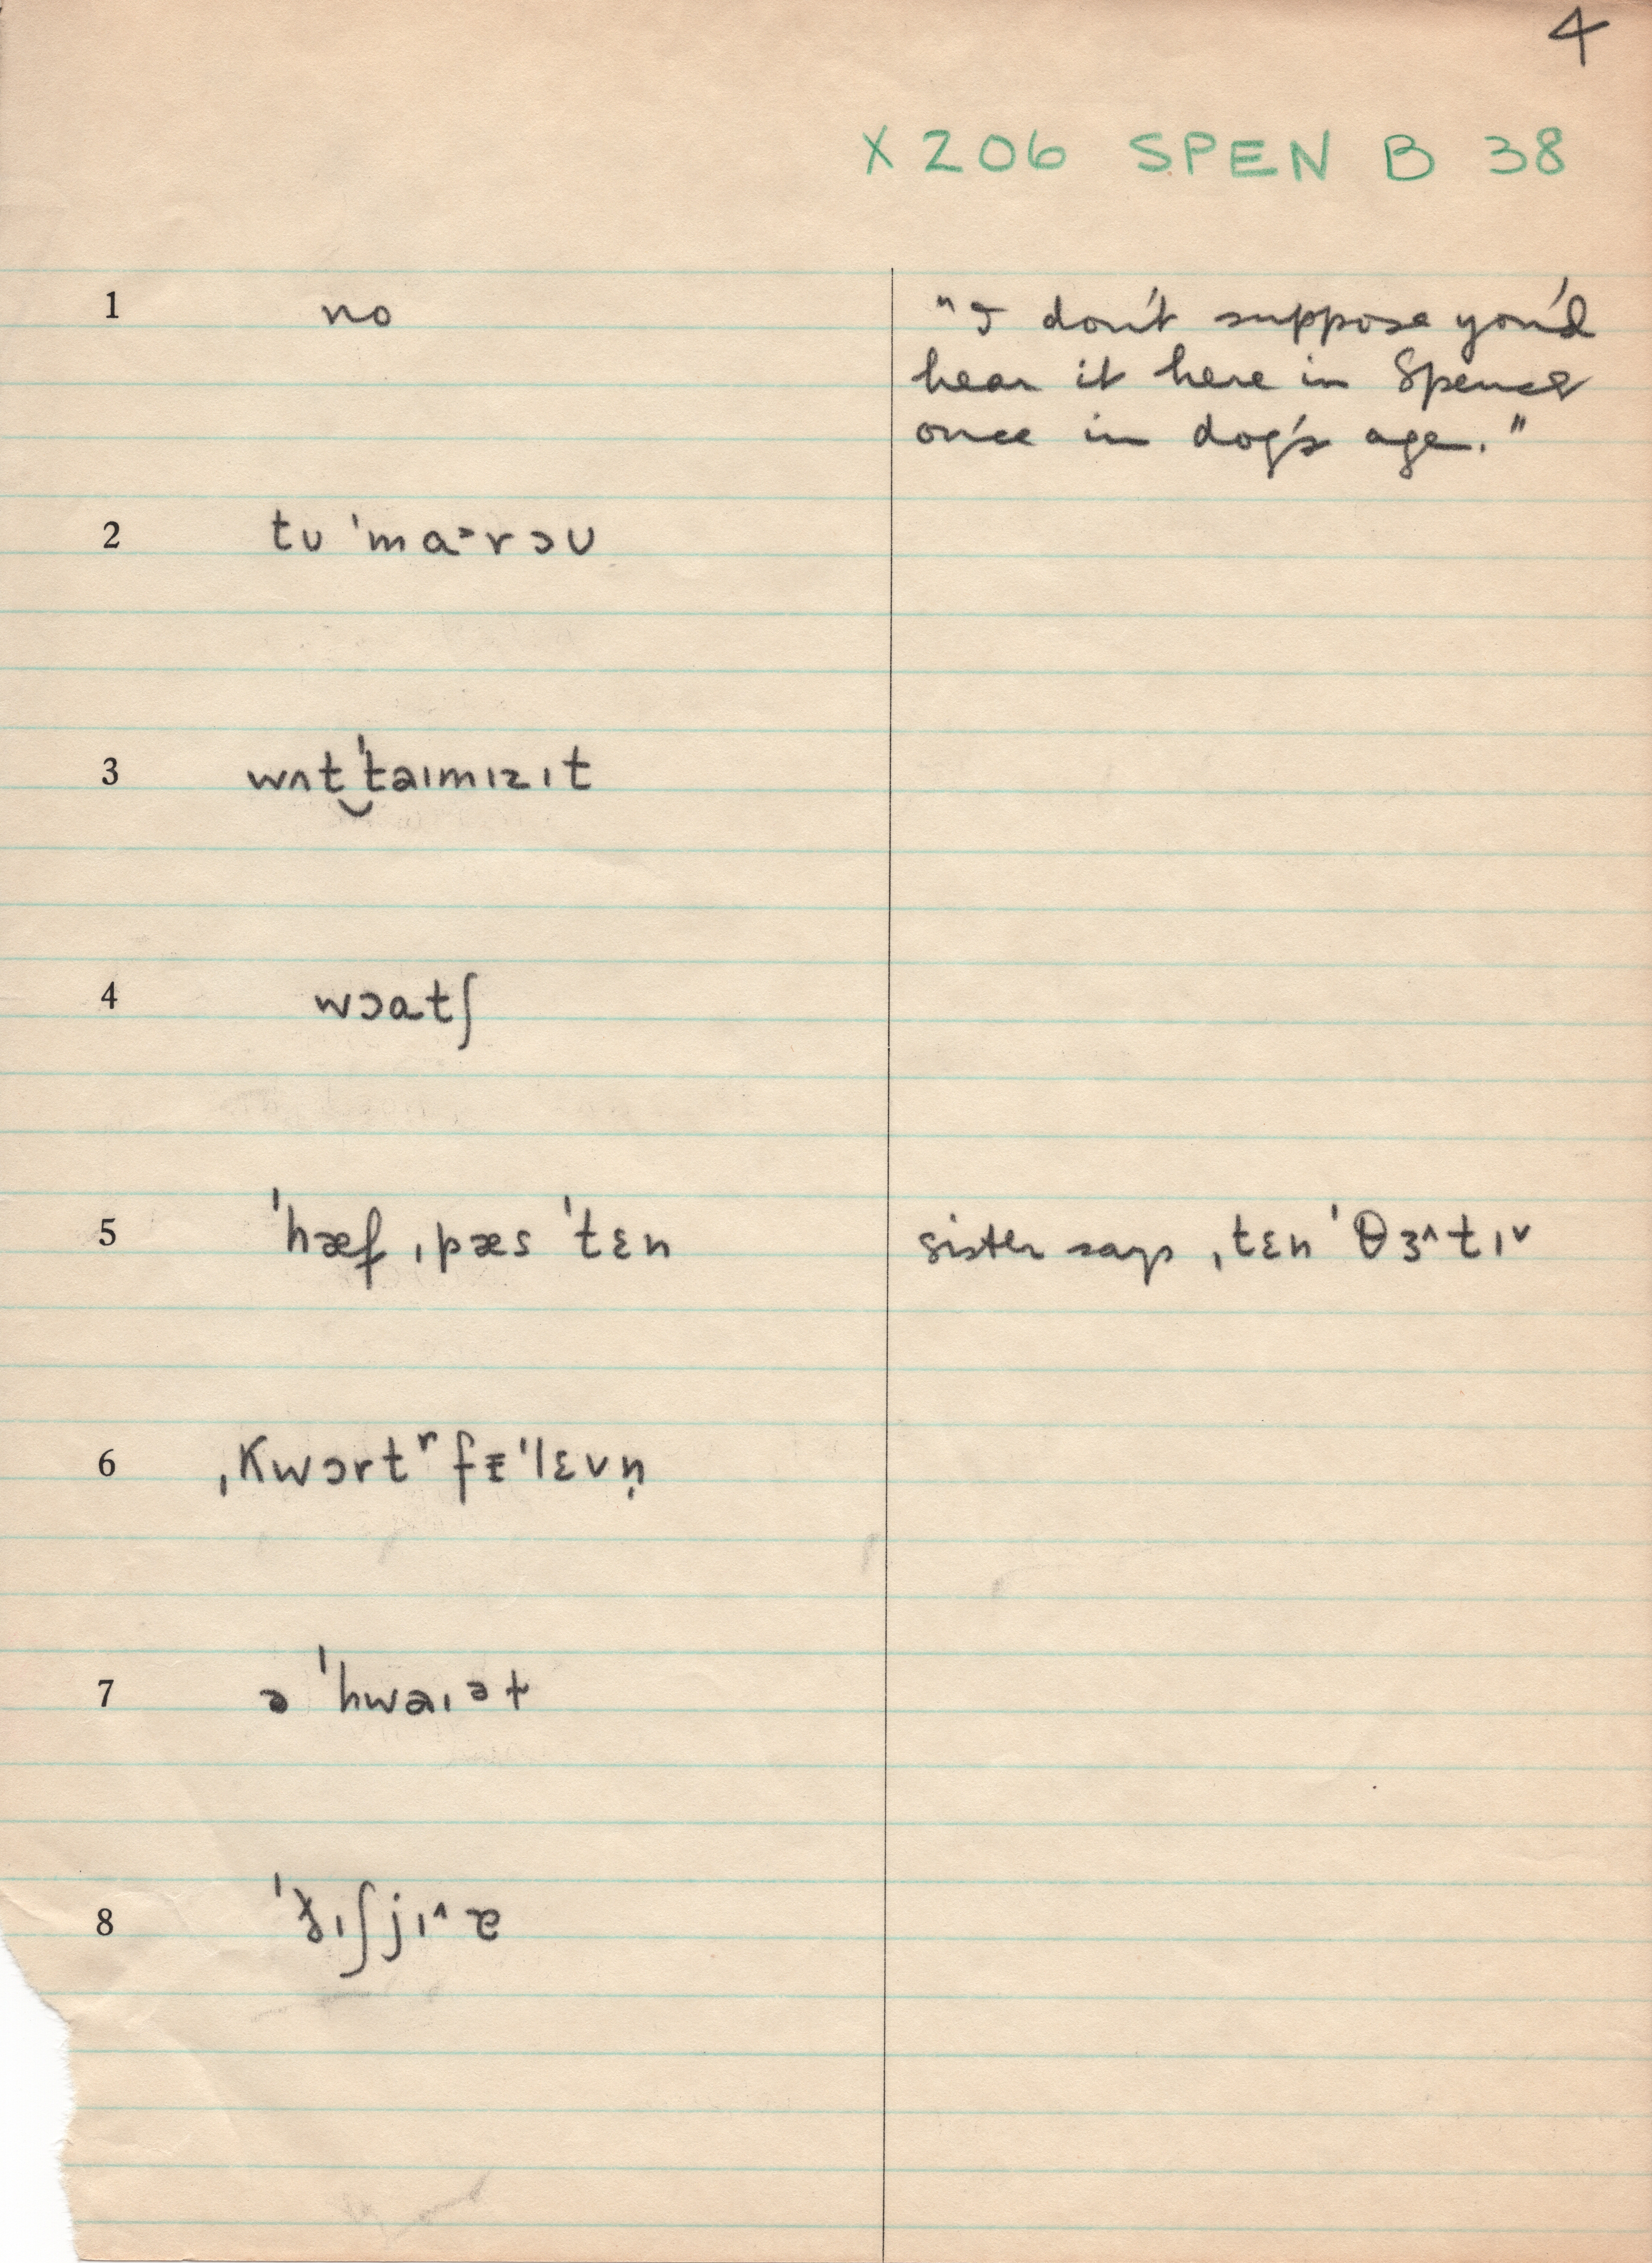 4
X 206 SPEN B 38
1 no "I don't suppose you'd
hear it here in Spencer
once in dog's age."
2 tʊ ˈmɑ˃rɔʊ
3 wʌt‿ˈtaɪmɪzɪt
4 wɔɑtʃ
5 ˈhæf ˌpæs ˈtɛn sister says ˌtɛn ˈθɜ˄tɪ˅
6 ˌKwɔrtʳ fᵻˈlɛvn̩
7 ə ˈhwaɪət
8 ʃjɪ˄ɐ